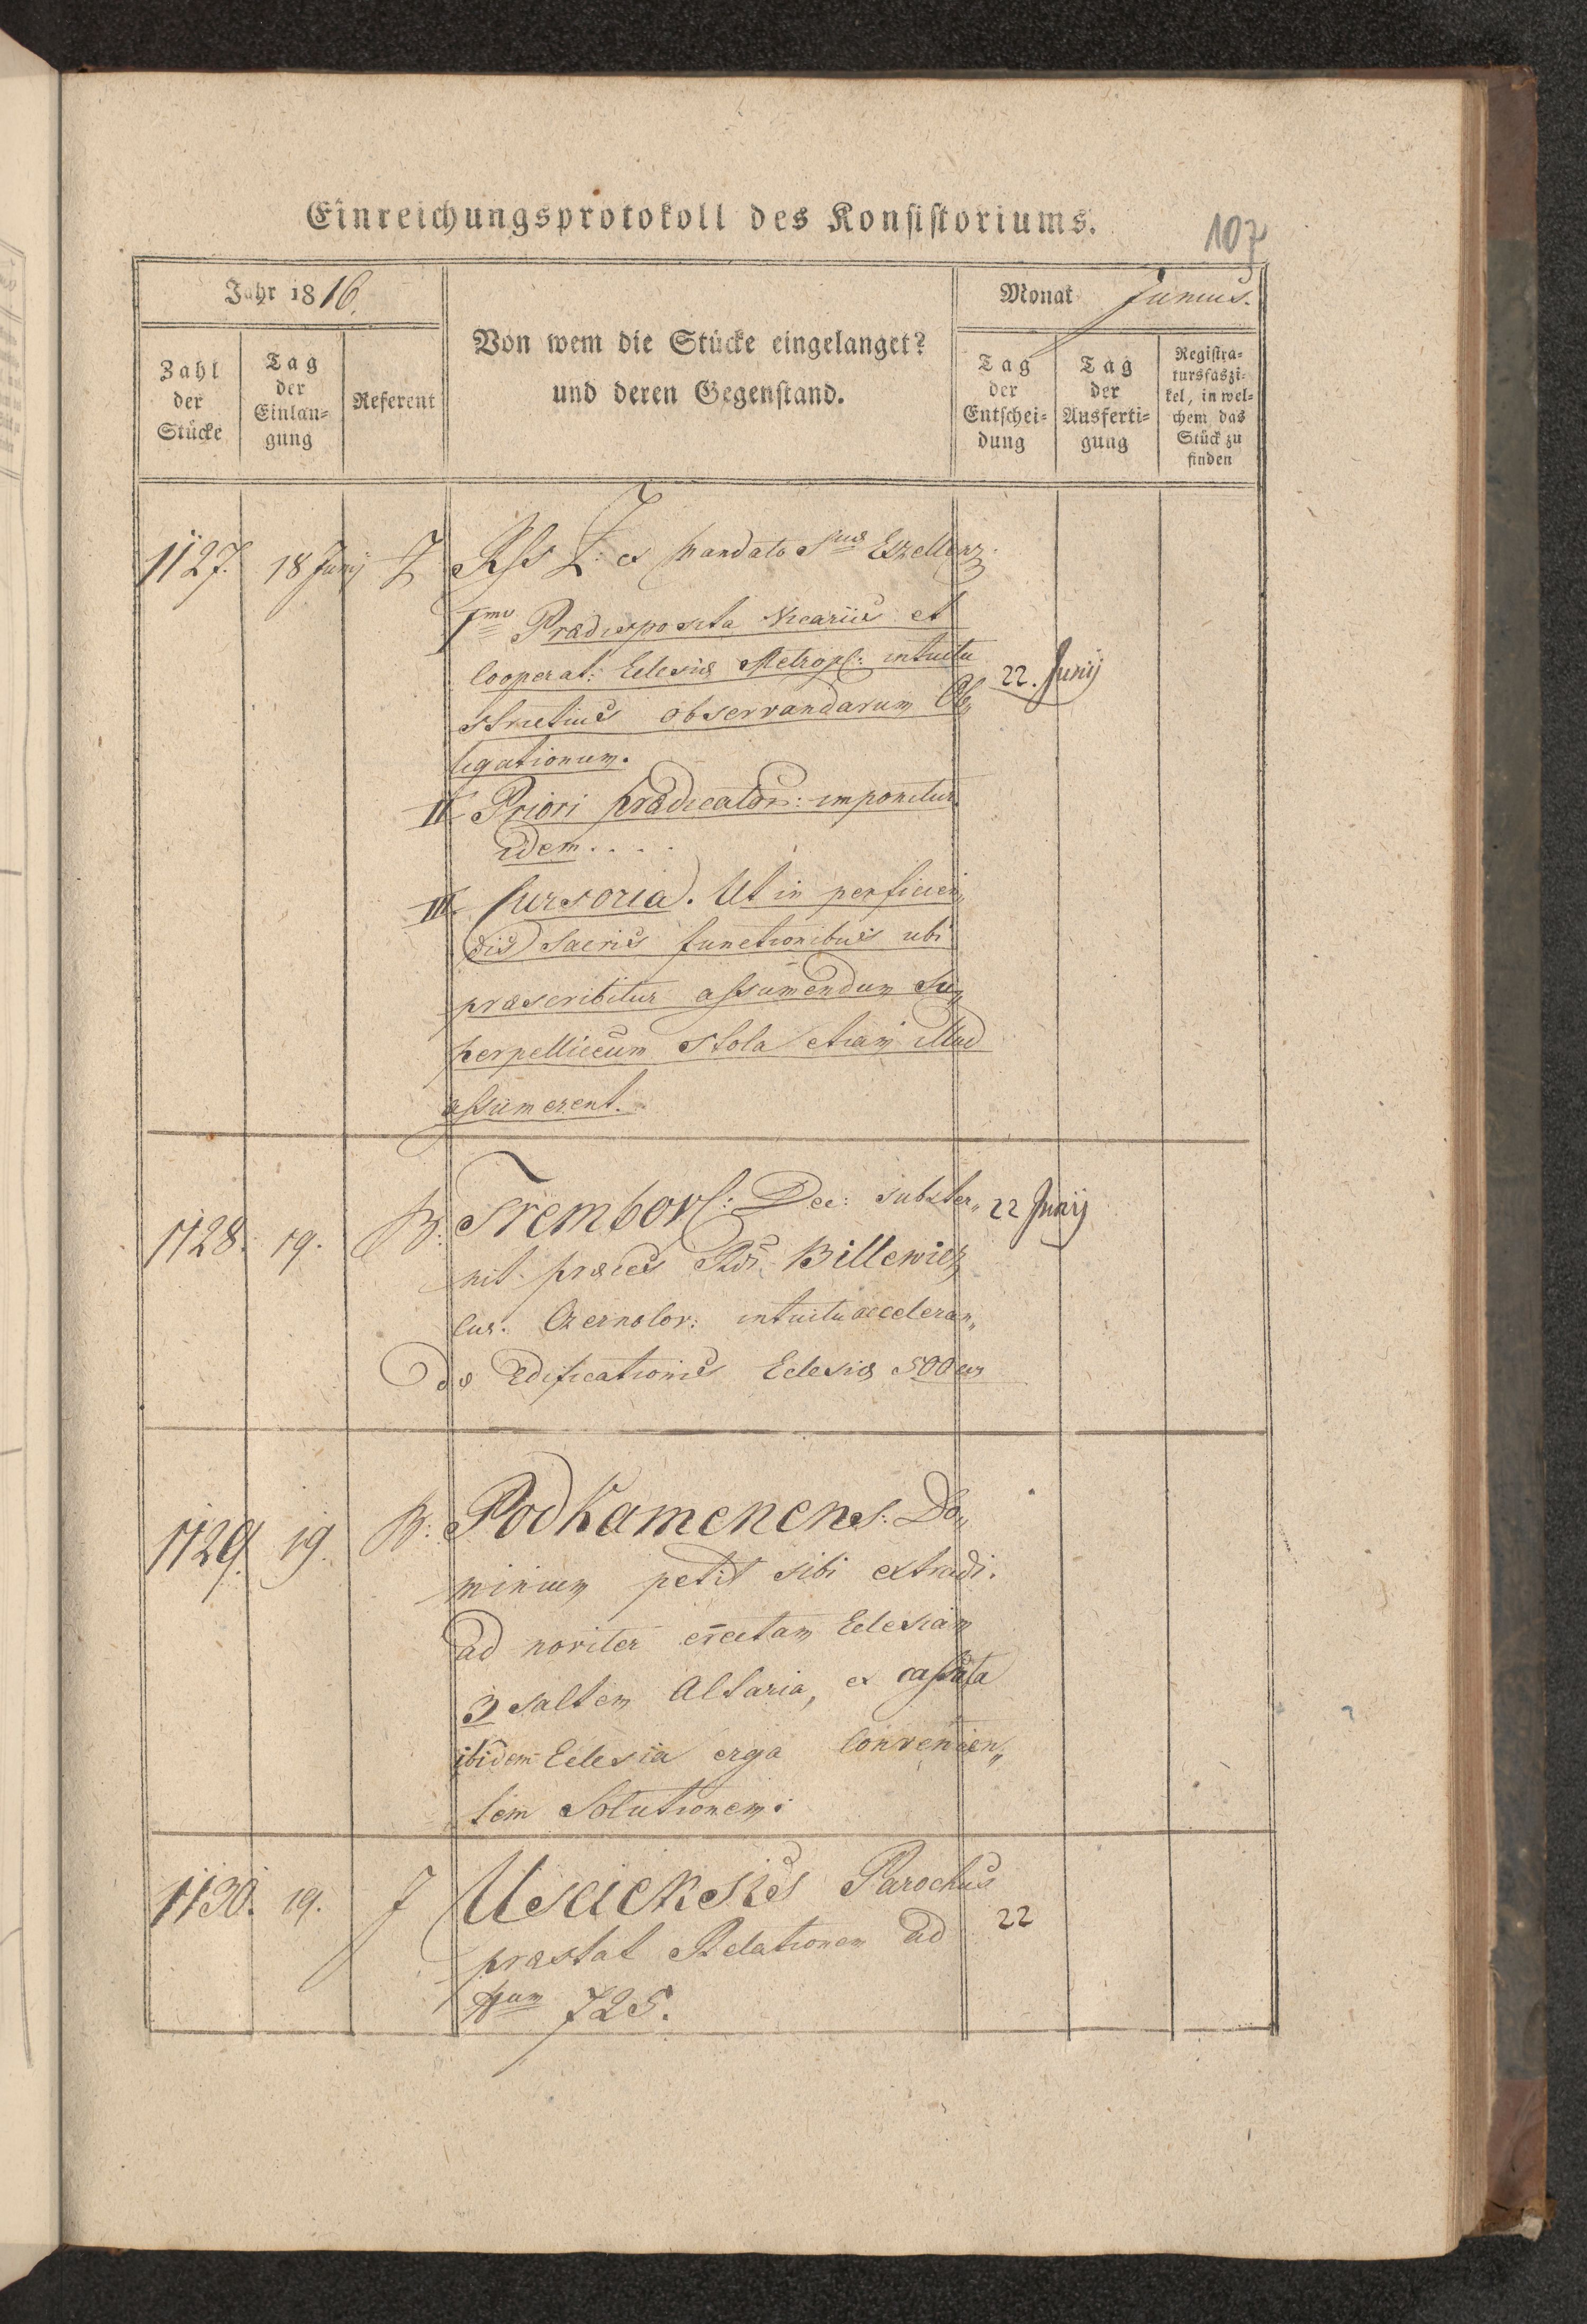 Einreichungsprotokoll des Konsistoriums.
107
Jahr 1816.
Von wem die Stücke eingelanget?
und deren Gegenstand.
Monat Junius.
Zahl
der
Stücke
Tag
der
Einlan=
gung
Referent
Tag
der
Entschei=
dung
Tag
der
Ausferti=
gung
Registra=
tursfaszi=
kel, in wel=
chem das
Stück zu
finden
1127. 18 Junij Z Rss Z: ex mandato Suae Exzellenz.
Imo Praedisposita Vicariis et
Cooperat: Eclesiae Metropl: intuitu 22. Junij
strictius observandarum Ob„
ligationum.
II Priori praedicator: imponitur
idem . . . .
III. Cursoria. Ut in perficien„
dis sacris functionibus ubi
praescribitur assumendum Su„
perpelliceum Stola etiam illud
assumerent.
1128. 19. B. Trembovl: Dec: subster„ 22 Junij
nit praeces Rdi Billewicz
Cur. Czernolor: intuitu acceleran„
dae Edificationis Eclesiae
1129. 19. B: Podkamenens: Do„
minium petit sibi extradi.
ad noviter erectam Eclesiam
3 saltem Altaria, ex cassata
ibidem Eclesia erga Convenien„
tem Solutionem.
1130. 19. J Usciensis Parochus
praestat Relationem ad 22
Nrum 725.